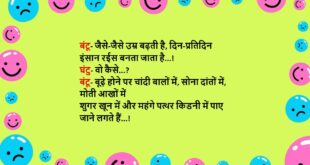 बंटू- जैसे-जैसे उम्र बढ़ती है, दिन-प्रतिदिन
इंसान रईस बनता जाता है...!
घंटू- वो कैसे...?
बंटू- बूढ़े होने पर चांदी बालों में, सोना दांतों में,
मोती आखों में
शुगर खून में और महंगे पत्थर किडनी में पाए
जाने लगते हैं...!